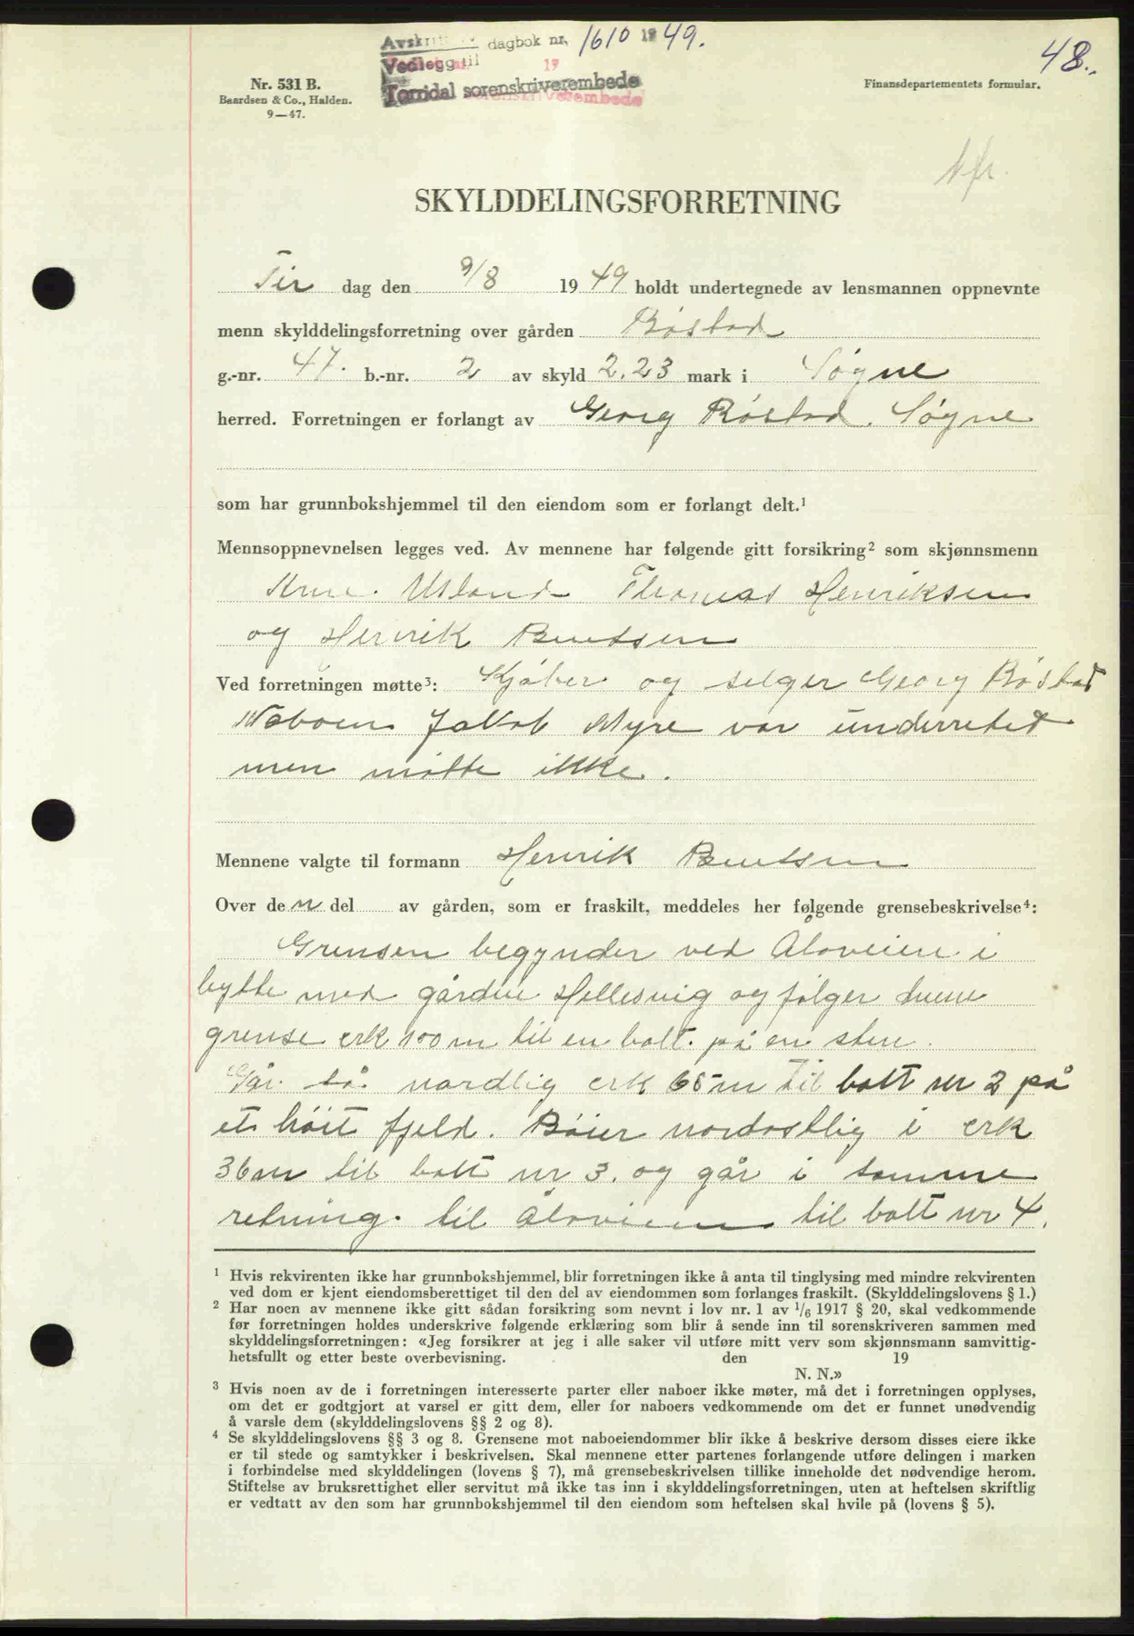 Avskrift dagbok nr. 1610 1949.
48.
Vedlegg til 19
Torridal sorenskriverembede
Nr. 531 B.
Baardsen & Co., Halden.
9—47.
Finansdepartementets formular.
SKYLDDELINGSFORRETNING
Tir dag den 9/8 1949 holdt undertegnede av lensmannen oppnevnte
menn skylddelingsforretning over gården Røstad
g.-nr. 47. b.-nr. 2 av skyld 2.23 mark i Søgne
herred. Forretningen er forlangt av Georg Røstad. Søgne
som har grunnbokshjemmel til den eiendom som er forlangt delt.¹
Mennsoppnevnelsen legges ved. Av mennene har følgende gitt forsikring² som skjønnsmenn
Usland Thomas Henriksen
og Henrik Bentsen
Ved forretningen møtte³: Kjøber og selger Georg Røstad
Naboen Jakob Myre var underrettet
men møtte ikke.
Mennene valgte til formann Henrik Bentsen
Over den del av gården, som er fraskilt, meddeles her følgende grensebeskrivelse⁴:
Grensen begynder ved Åloveien i
bytte med gården Hellesvig og følger denne
grense crk 100 m til en bolt. på en sten.
Går så nordlig crk 65 m til bolt nr 2 på
et høit fjeld. Bøier nordostlig i crk
36 m til bolt nr 3. og går i samme
retning. til Åloveien til bolt nr 4.
¹ Hvis rekvirenten ikke har grunnbokshjemmel, blir forretningen ikke å anta til tinglysing med mindre rekvirenten
ved dom er kjent eiendomsberettiget til den del av eiendommen som forlanges fraskilt. (Skylddelingslovens § 1.)
² Har noen av mennene ikke gitt sådan forsikring som nevnt i lov nr. 1 av 1/6 1917 § 20, skal vedkommende
før forretningen holdes underskrive følgende erklæring som blir å sende inn til sorenskriveren sammen med
skylddelingsforretningen: «Jeg forsikrer at jeg i alle saker vil utføre mitt verv som skjønnsmann samvittig-
hetsfullt og etter beste overbevisning. den 19
N. N.»
³ Hvis noen av de i forretningen interesserte parter eller naboer ikke møter, må det i forretningen opplyses,
om det er godtgjort at varsel er gitt dem, eller for naboers vedkommende om det er funnet unødvendig
å varsle dem (skylddelingslovens §§ 2 og 8).
⁴ Se skylddelingslovens §§ 3 og 8. Grensene mot naboeiendommer blir ikke å beskrive dersom disses eiere ikke
er til stede og samtykker i beskrivelsen. Skal mennene etter partenes forlangende utføre delingen i marken
i forbindelse med skylddelingen (lovens § 7), må grensebeskrivelsen tillike inneholde det nødvendige herom.
Stiftelse av bruksrettighet eller servitut må ikke tas inn i skylddelingsforretningen, uten at heftelsen skriftlig
er vedtatt av den som har grunnbokshjemmel til den eiendom som heftelsen skal hvile på (lovens § 5).